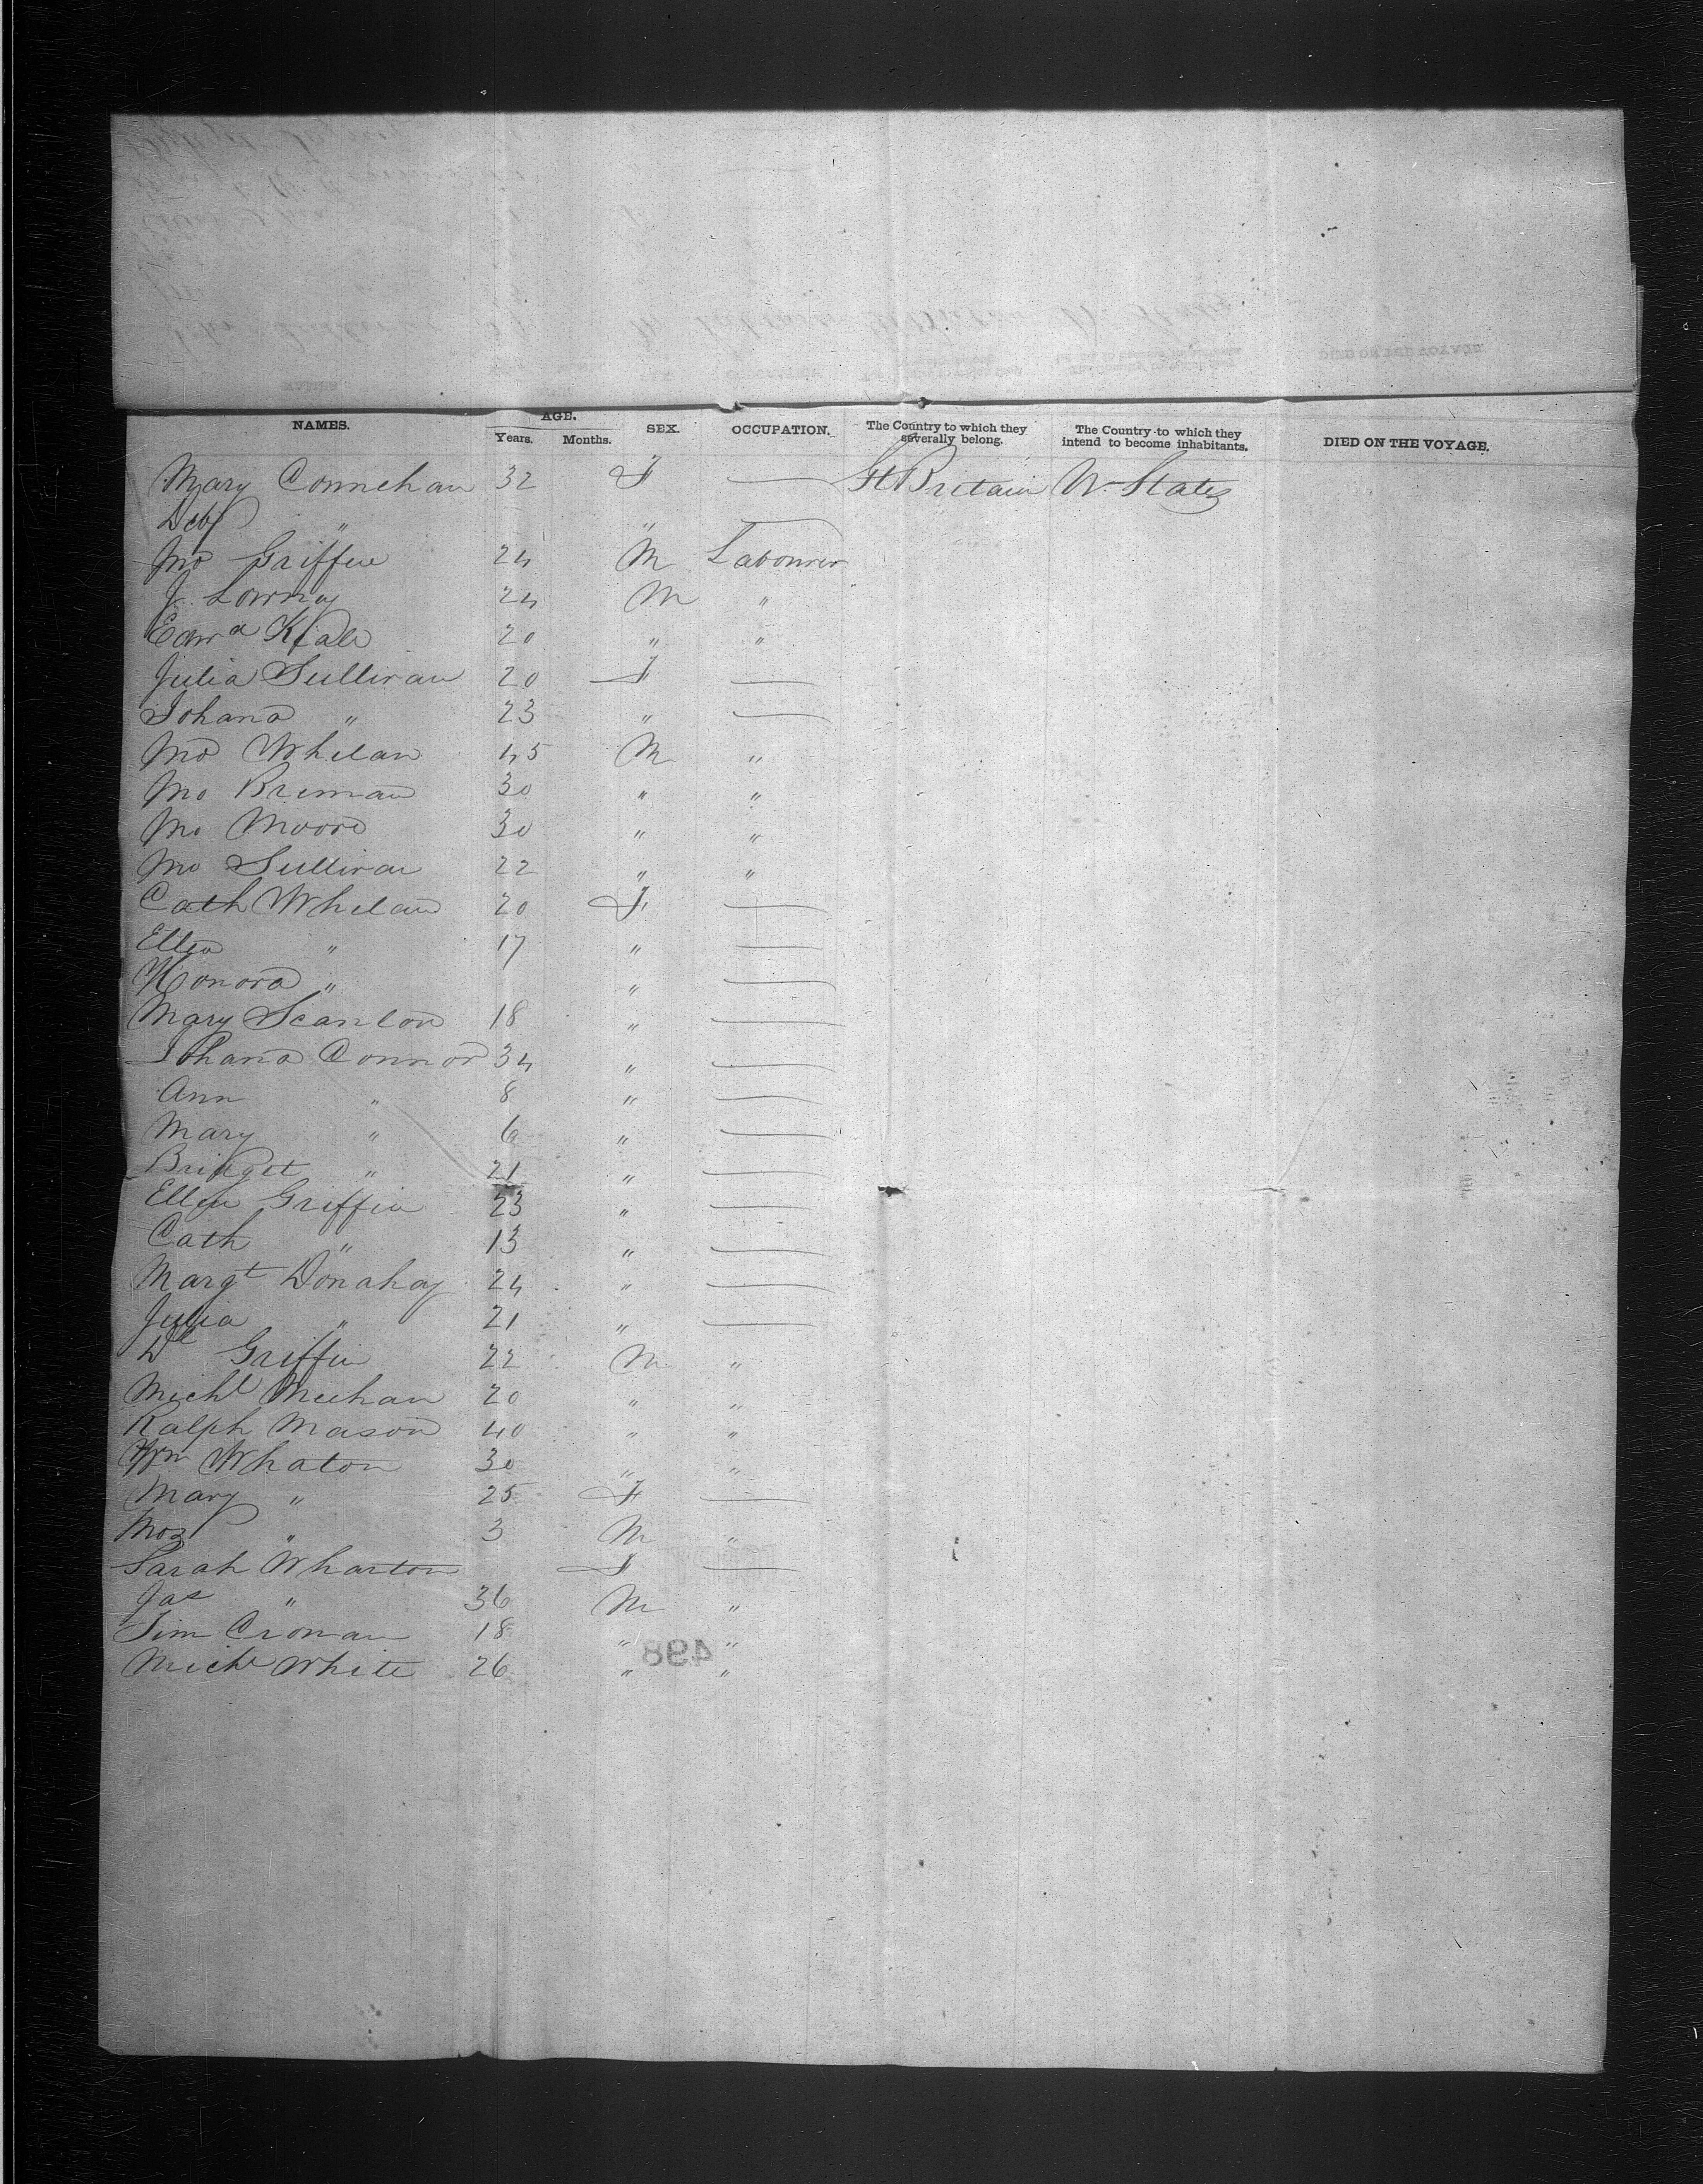 NAMES. AGE. Years. Months. SEX. OCCUPATION. The Country to which they severally belong. The Country to which they intend to become inhabitants. DIED ON THE VOYAGE.
Mary Connehan 32 F — Gt Britain U. States
" " —
Jno Griffin 24 M Labourer
J. Lowney 24 M "
Edwd 20 " "
Julia Sullivan 20 F —
Johana " 23 " —
Jno Whelan 45 M "
Jno Brennan 30 " "
Jno Moore 30 " "
Jno Sullivan 22 " "
Cath Whelan 20 F —
Ellen " 17 " —
Honora " " —
Mary Scanlon 18 " —
Johana Connor 34 " —
Ann " 8 " —
Mary " 6 " —
Bridget " 21 " —
Ellen Griffin 23 " —
Cath " 13 " —
Margt Donahay 24 " —
Julia " 21 " —
Dl Griffin 22 M "
Michl Meehan 20 " "
Ralph Mason 40 " "
Wm Whaton 30 " "
Mary " 25 F —
" 3 M "
Sarah Wharton F —
Jas " 36 M "
Tim Cronan 18 " "
Michl White 26 " "
498